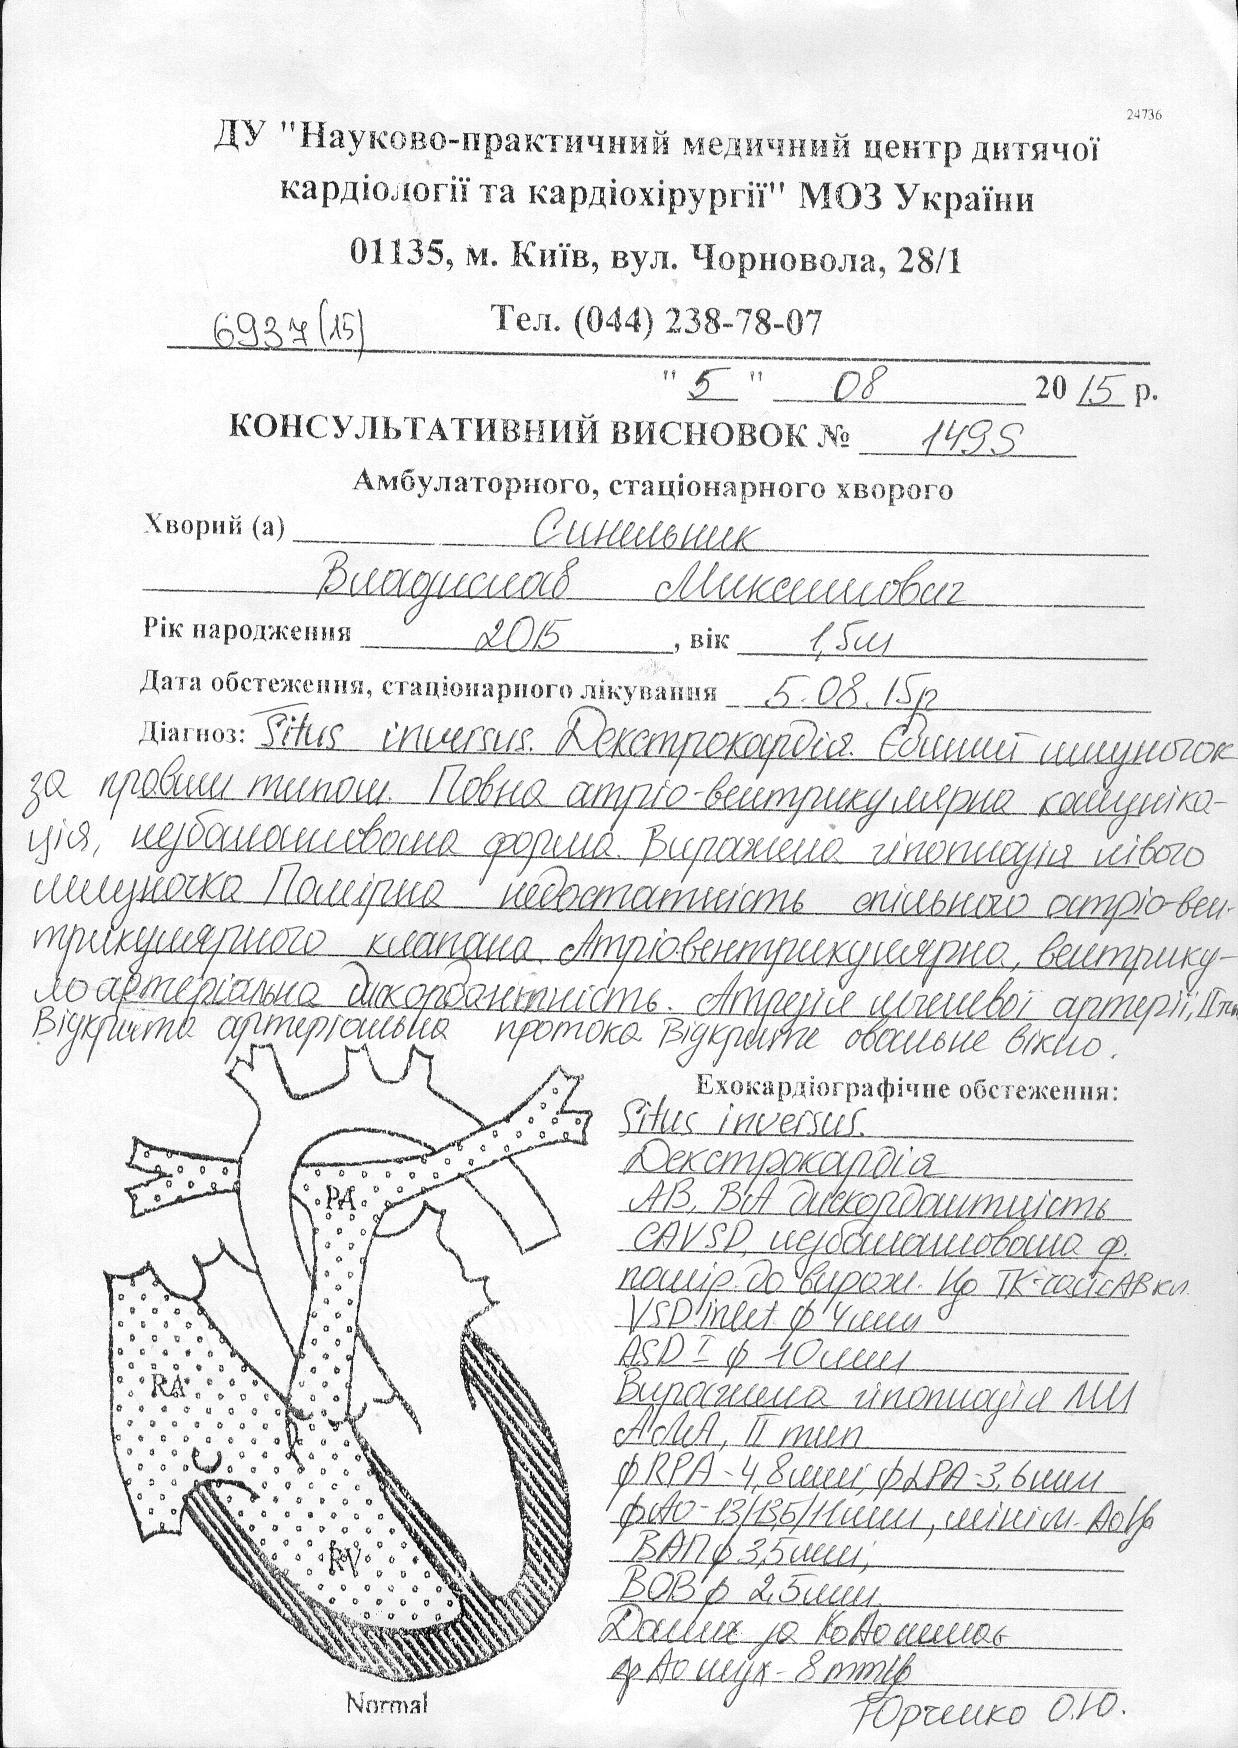 24736
ДУ "Науково-практичний медичний центр дитячої
кардіології та кардіохірургії" МОЗ України
01135, м. Київ, вул. Чорновола, 28/1
6937(15) Тел. (044) 238-78-07
" 5 " 08 20 15 р.
КОНСУЛЬТАТИВНИЙ ВИСНОВОК № 149S
Амбулаторного, стаціонарного хворого
Хворий (а) Синельник
Владислав Максимович
Рік народження 2015 , вік 1,5м
Дата обстеження, стаціонарного лікування 5.08.15р
Діагноз: Situs inversus. Декстрокардія. Єдиний шлуночок
за правим типом. Повна атріо-вентрикулярна комуніка-
ція, незбалансована форма. Виражена гіпоплазія лівого
шлуночка Помірна недостатність спільного атріо-вен-
трикулярного клапана. Атріовентрикулярна, вентрику-
лоартеріальна дискордантність. Атрезія легеневої артерії, II тип
Відкрита артеріальна протока Відкрите овальне вікно.
Ехокардіографічне обстеження:
Situs inversus.
Декстрокардія
АВ, ВА дискордантність
CAVSD, незбалансована ф.
помір. до вираж. ТК-част АВ кл.
VSD inlet ф 4мм
ASD I ф 10мм
Виражена гіпоплазія ЛШ
АЛА, II тип
ф RPA - 4,8мм, ф LPA - 3,6мм
ф АО - 13/13,5/11мм, мінім.
ВАП ф 3,5мм,
ВОВ ф 2,5мм
Даних за КоАо немає
Ао - 8mm
Юрченко О.Ю.
PA
RA
RV
Normal